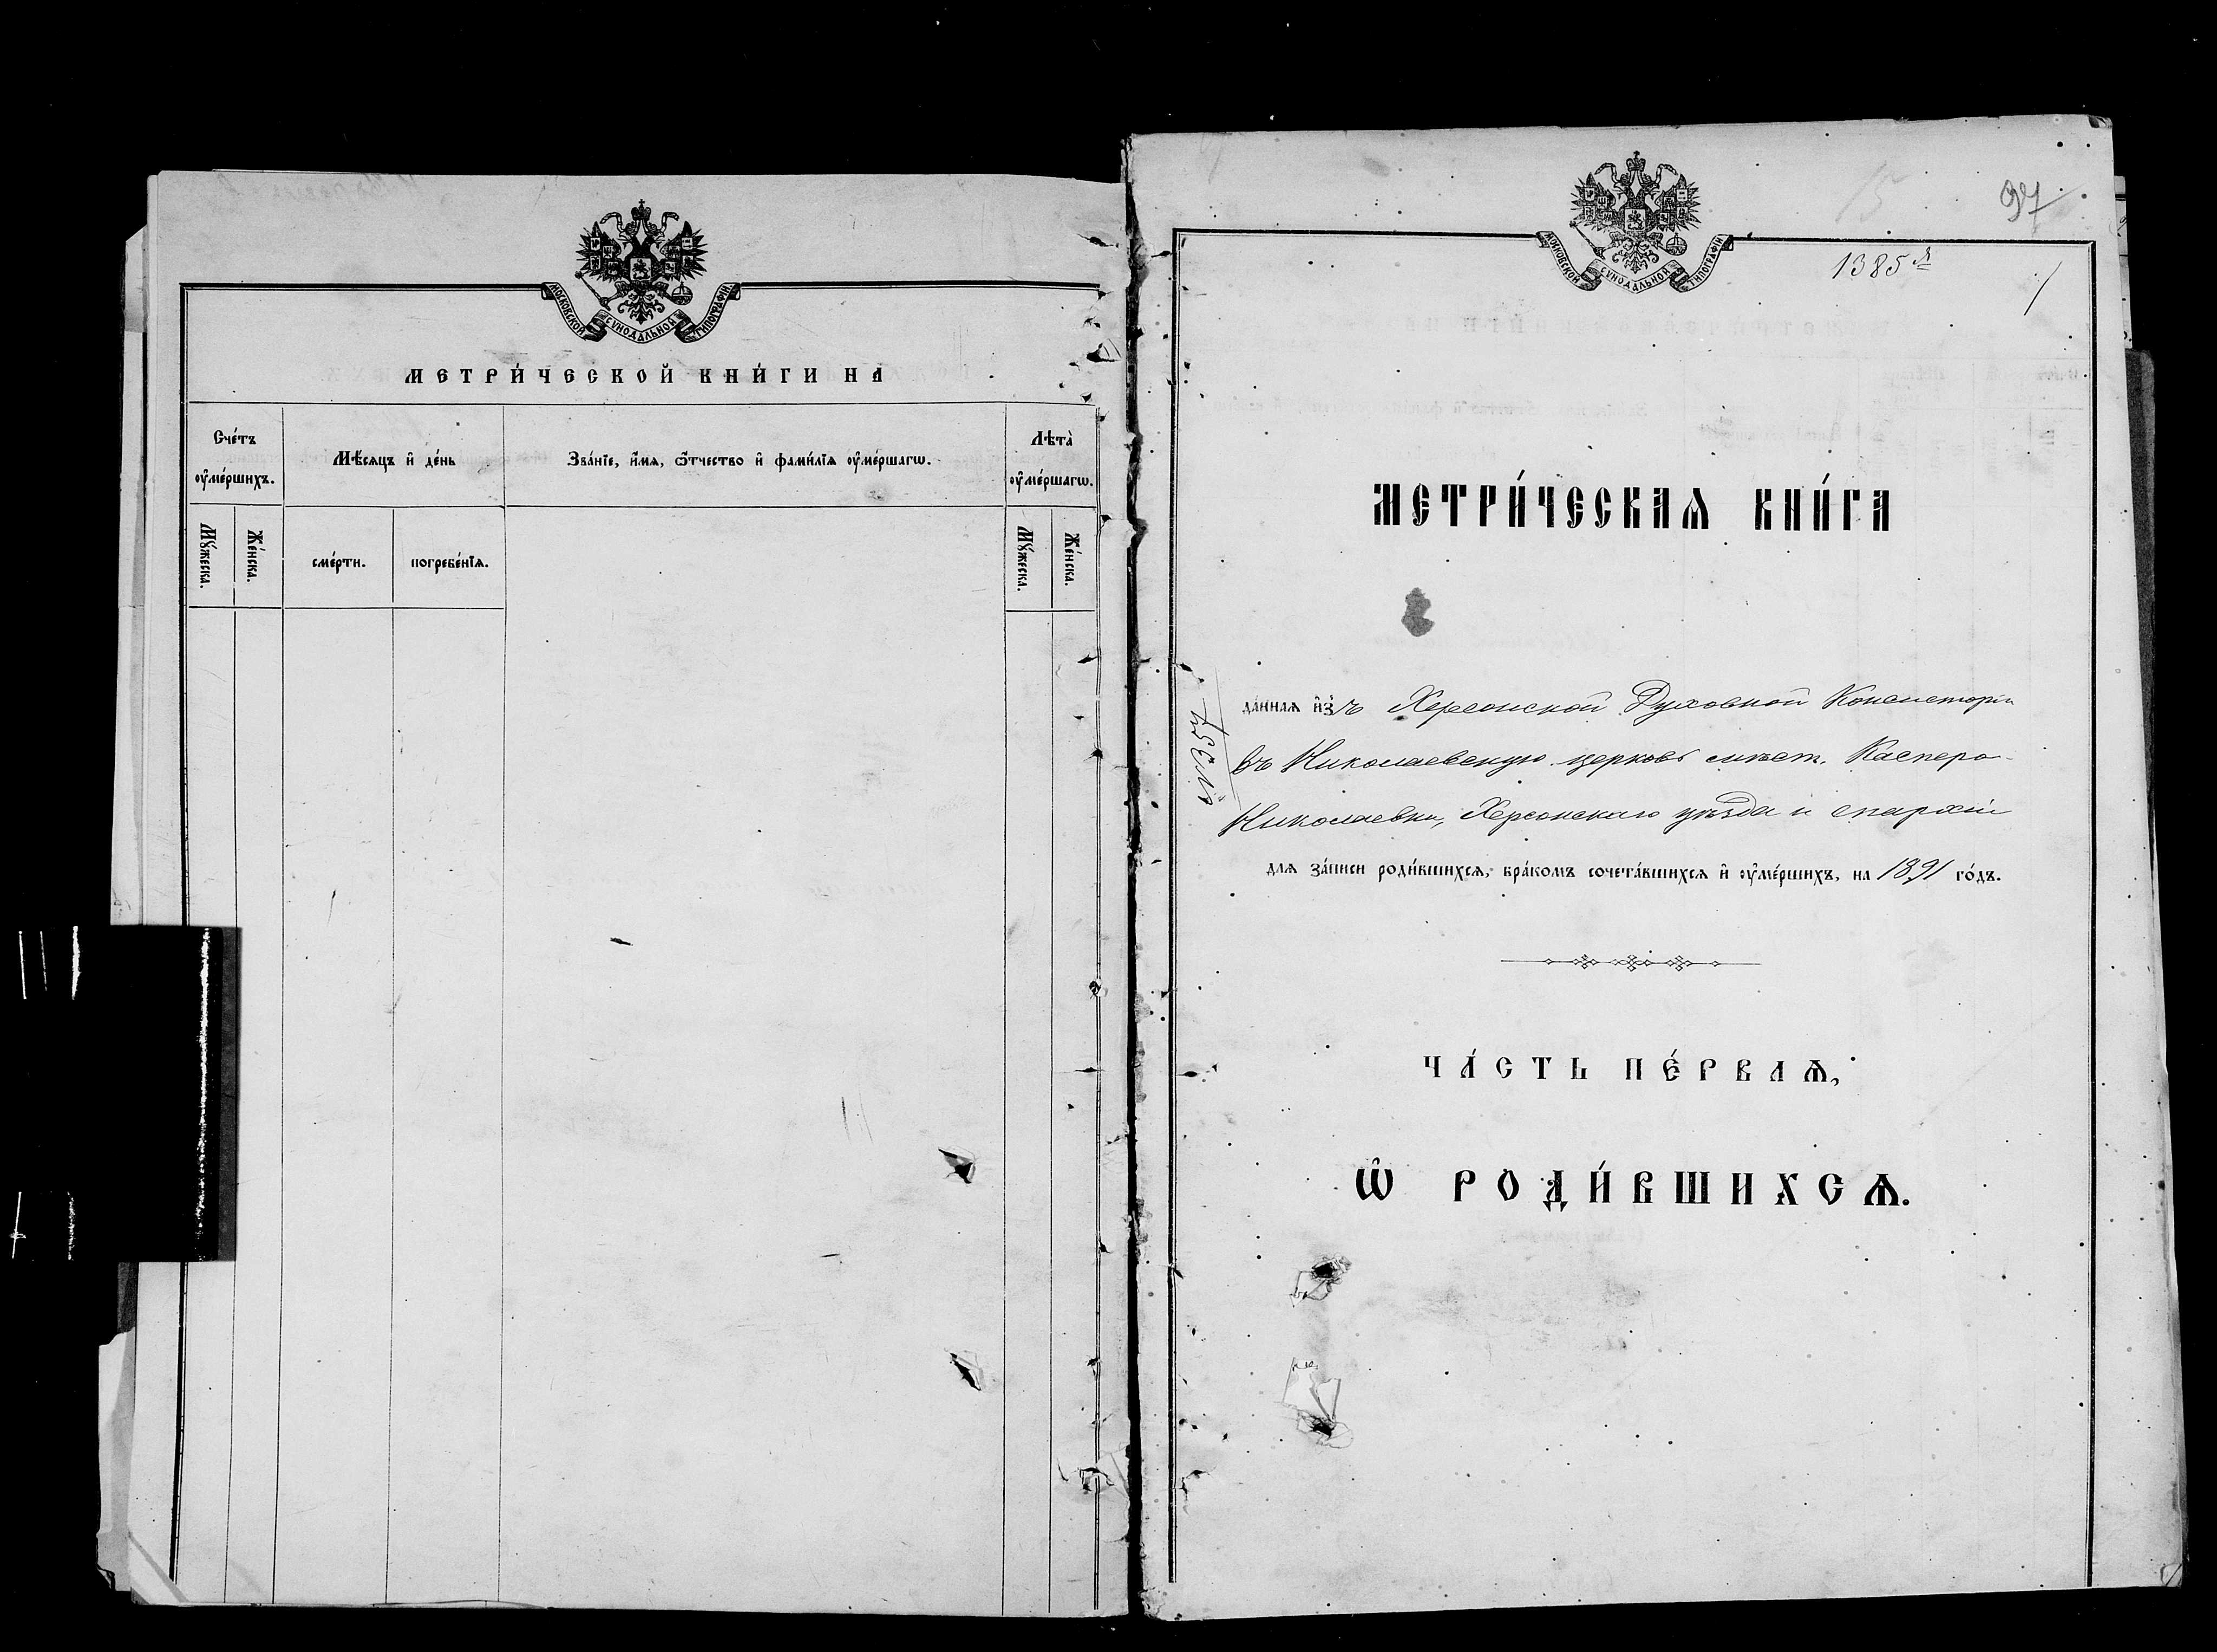 МОСКОВСКОЙ СѴНОДАЛЬНОЙ ТИПОГРАФІИ
МЕТРИ́ЧЕСКОЙ КНИ́ГИ НА
Сче́тъ ᲂу҆ме́ршихъ.
Мѣ́сяцъ и҆ де́нь
Зва́нїе, и҆́мѧ, ѻ҆́тчество и҆ фамѝлїѧ ᲂу҆ме́ршагѡ.
Лѣта̀ ᲂу҆ме́ршагѡ.
Мꙋ́жеска.
Же́нска.
сме́рти.
погребе́нїѧ.
Мꙋ́жеска.
Же́нска.
97
МОСКОВСКОЙ СѴНОДАЛЬНОЙ ТИПОГРАФІИ
1385
МЕТРИ́ЧЕСКАѦ КНИ́ГА
да́ннаѧ и҆зъ Херсонской Духовной Консисторіи
въ Николаевскую церковь мѣст. Касперо-
Николаевки, Херсонскаго уѣзда и епархіи
длѧ за́писи роди́вшихсѧ, бра́комъ сочета́вшихсѧ и҆ ᲂу҆ме́ршихъ, на 1891 го́дъ.
ЧА́СТЬ ПЕ́РВАѦ,
Ѡ҆ РОДИ́ВШИХСѦ.